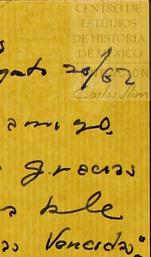 CENTRO DE
ESTUDIOS
DE HISTORIA
DE MÉXICO
FUNDACIÓN
Carlos Slim
s
agosto 20/62
amigo,
gracias
ble
as Vencidas"